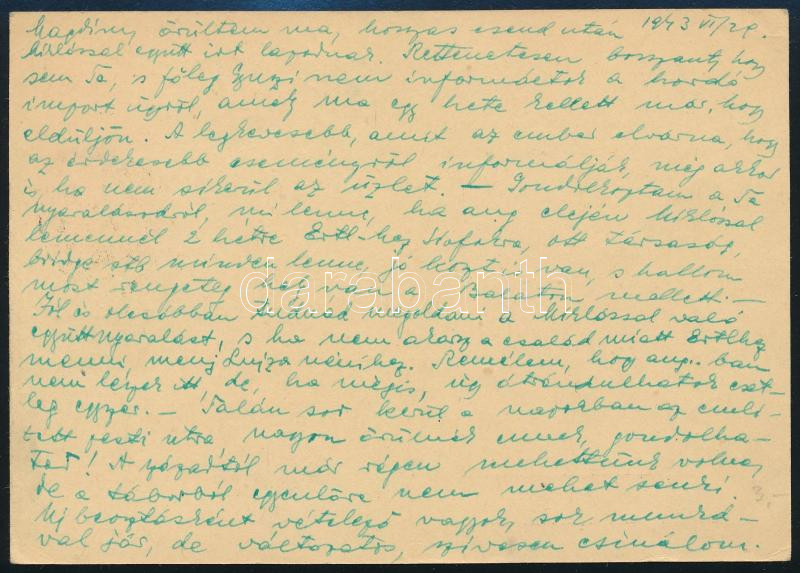 Magdím, örültem ma, hosszas csend után 1943 VI/29.
Miklóssal együtt írt lapodnak. Rettenetesen bosszant, hogy
sem Te, s főleg Zsuzsi nem informáltok a hordó
import ügyről, amely ma egy hete kellett már, hogy
eldüljön. A legkevesebb, amit az ember elvárna, hogy
az érdekesebb eseményről informálják, még akkor
is ha nem sikerül az üzlet. — Gondolkoztam a Te
nyaralásodról, mi lenne, ha aug elején Miklóssal
lemennél 2 hétre Ertl-hez Siófokra, ott társaság,
bridge stb minden lenne, jó koszt is van, s hallom
most rengeteg hely van a Balaton mellett. —
Jól és olcsóbban tudnád megoldani a Miklóssal való
együttnyaralást, s ha nem akarsz a család miatt Ertlhez
menni, menj Lujza nénihez. Remélem, hogy aug.-ban
nem leszek itt de, ha mégis, úgy átrándulhatok eset-
leg egyszer. — Talán sor kerül a napokban az emlí-
tett pesti útra nagyon örülnék ennek, gondolha-
tod! A századtól már régen mehettünk volna,
de a táborból egyenlőre nem mehet senki.
Uj beosztásként vételező vagyok, sok munká-
val jár, de változatos, szívesen csinálom.
3.-
darabanth